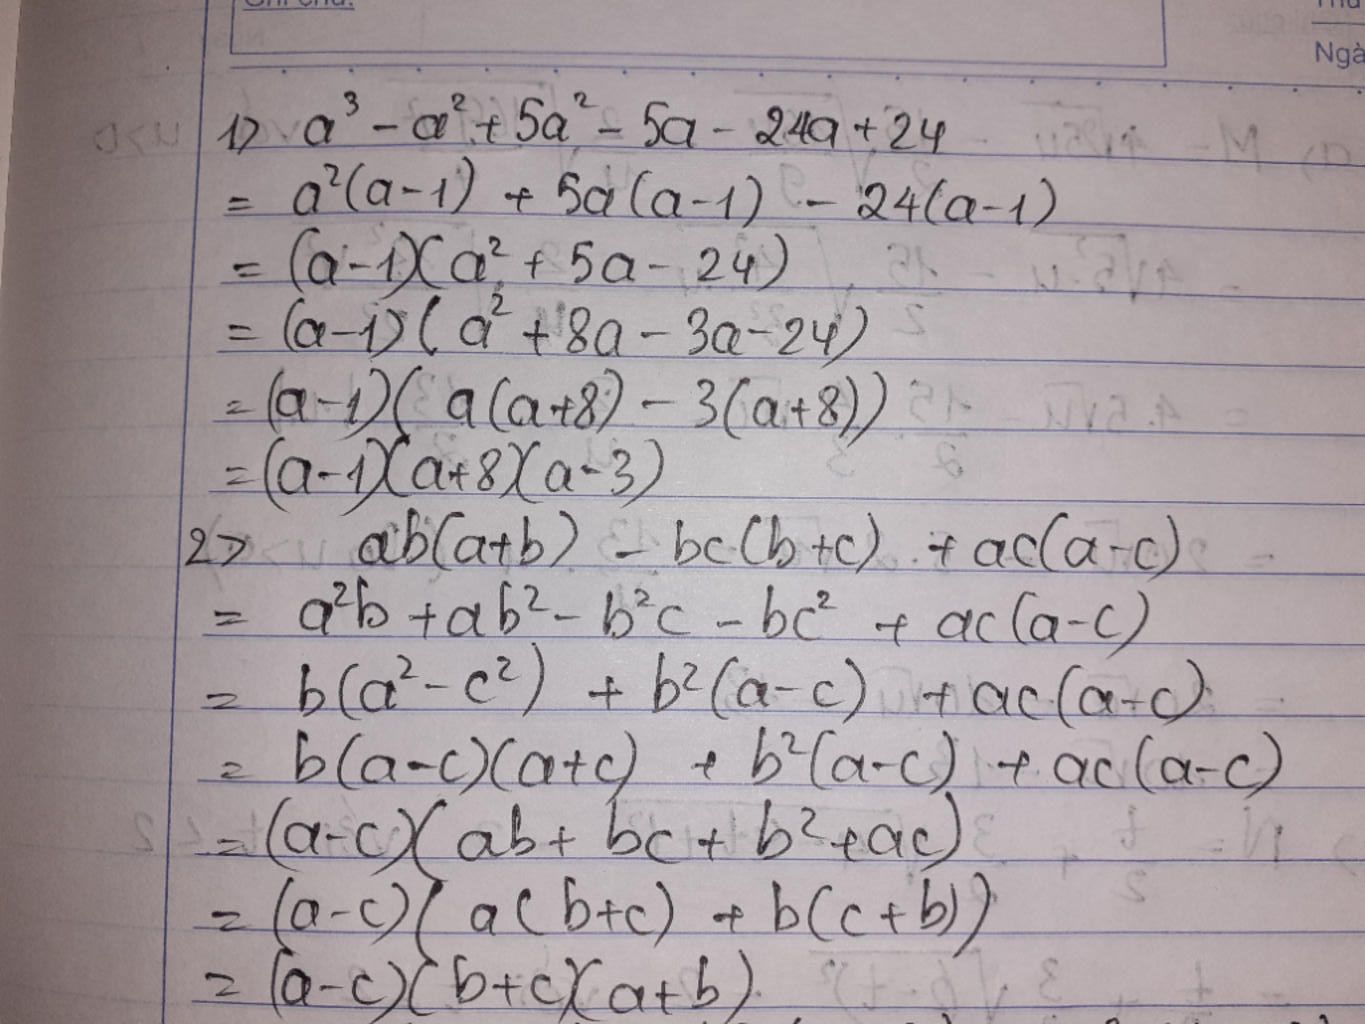 Ghi chú:
Thứ
Ngà
1) a³ - a² + 5a² - 5a - 24a + 24
= a²(a-1) + 5a(a-1) - 24(a-1)
= (a-1)(a² + 5a - 24)
= (a-1)(a² + 8a - 3a - 24)
= (a-1)(a(a+8) - 3(a+8))
= (a-1)(a+8)(a-3)
2) ab(a+b) - bc(b+c) + ac(a-c)
= a²b + ab² - b²c - bc² + ac(a-c)
= b(a² - c²) + b²(a-c) + ac(a-c)
= b(a-c)(a+c) + b²(a-c) + ac(a-c)
= (a-c)(ab + bc + b² + ac)
= (a-c)(a(b+c) + b(c+b))
= (a-c)(b+c)(a+b)